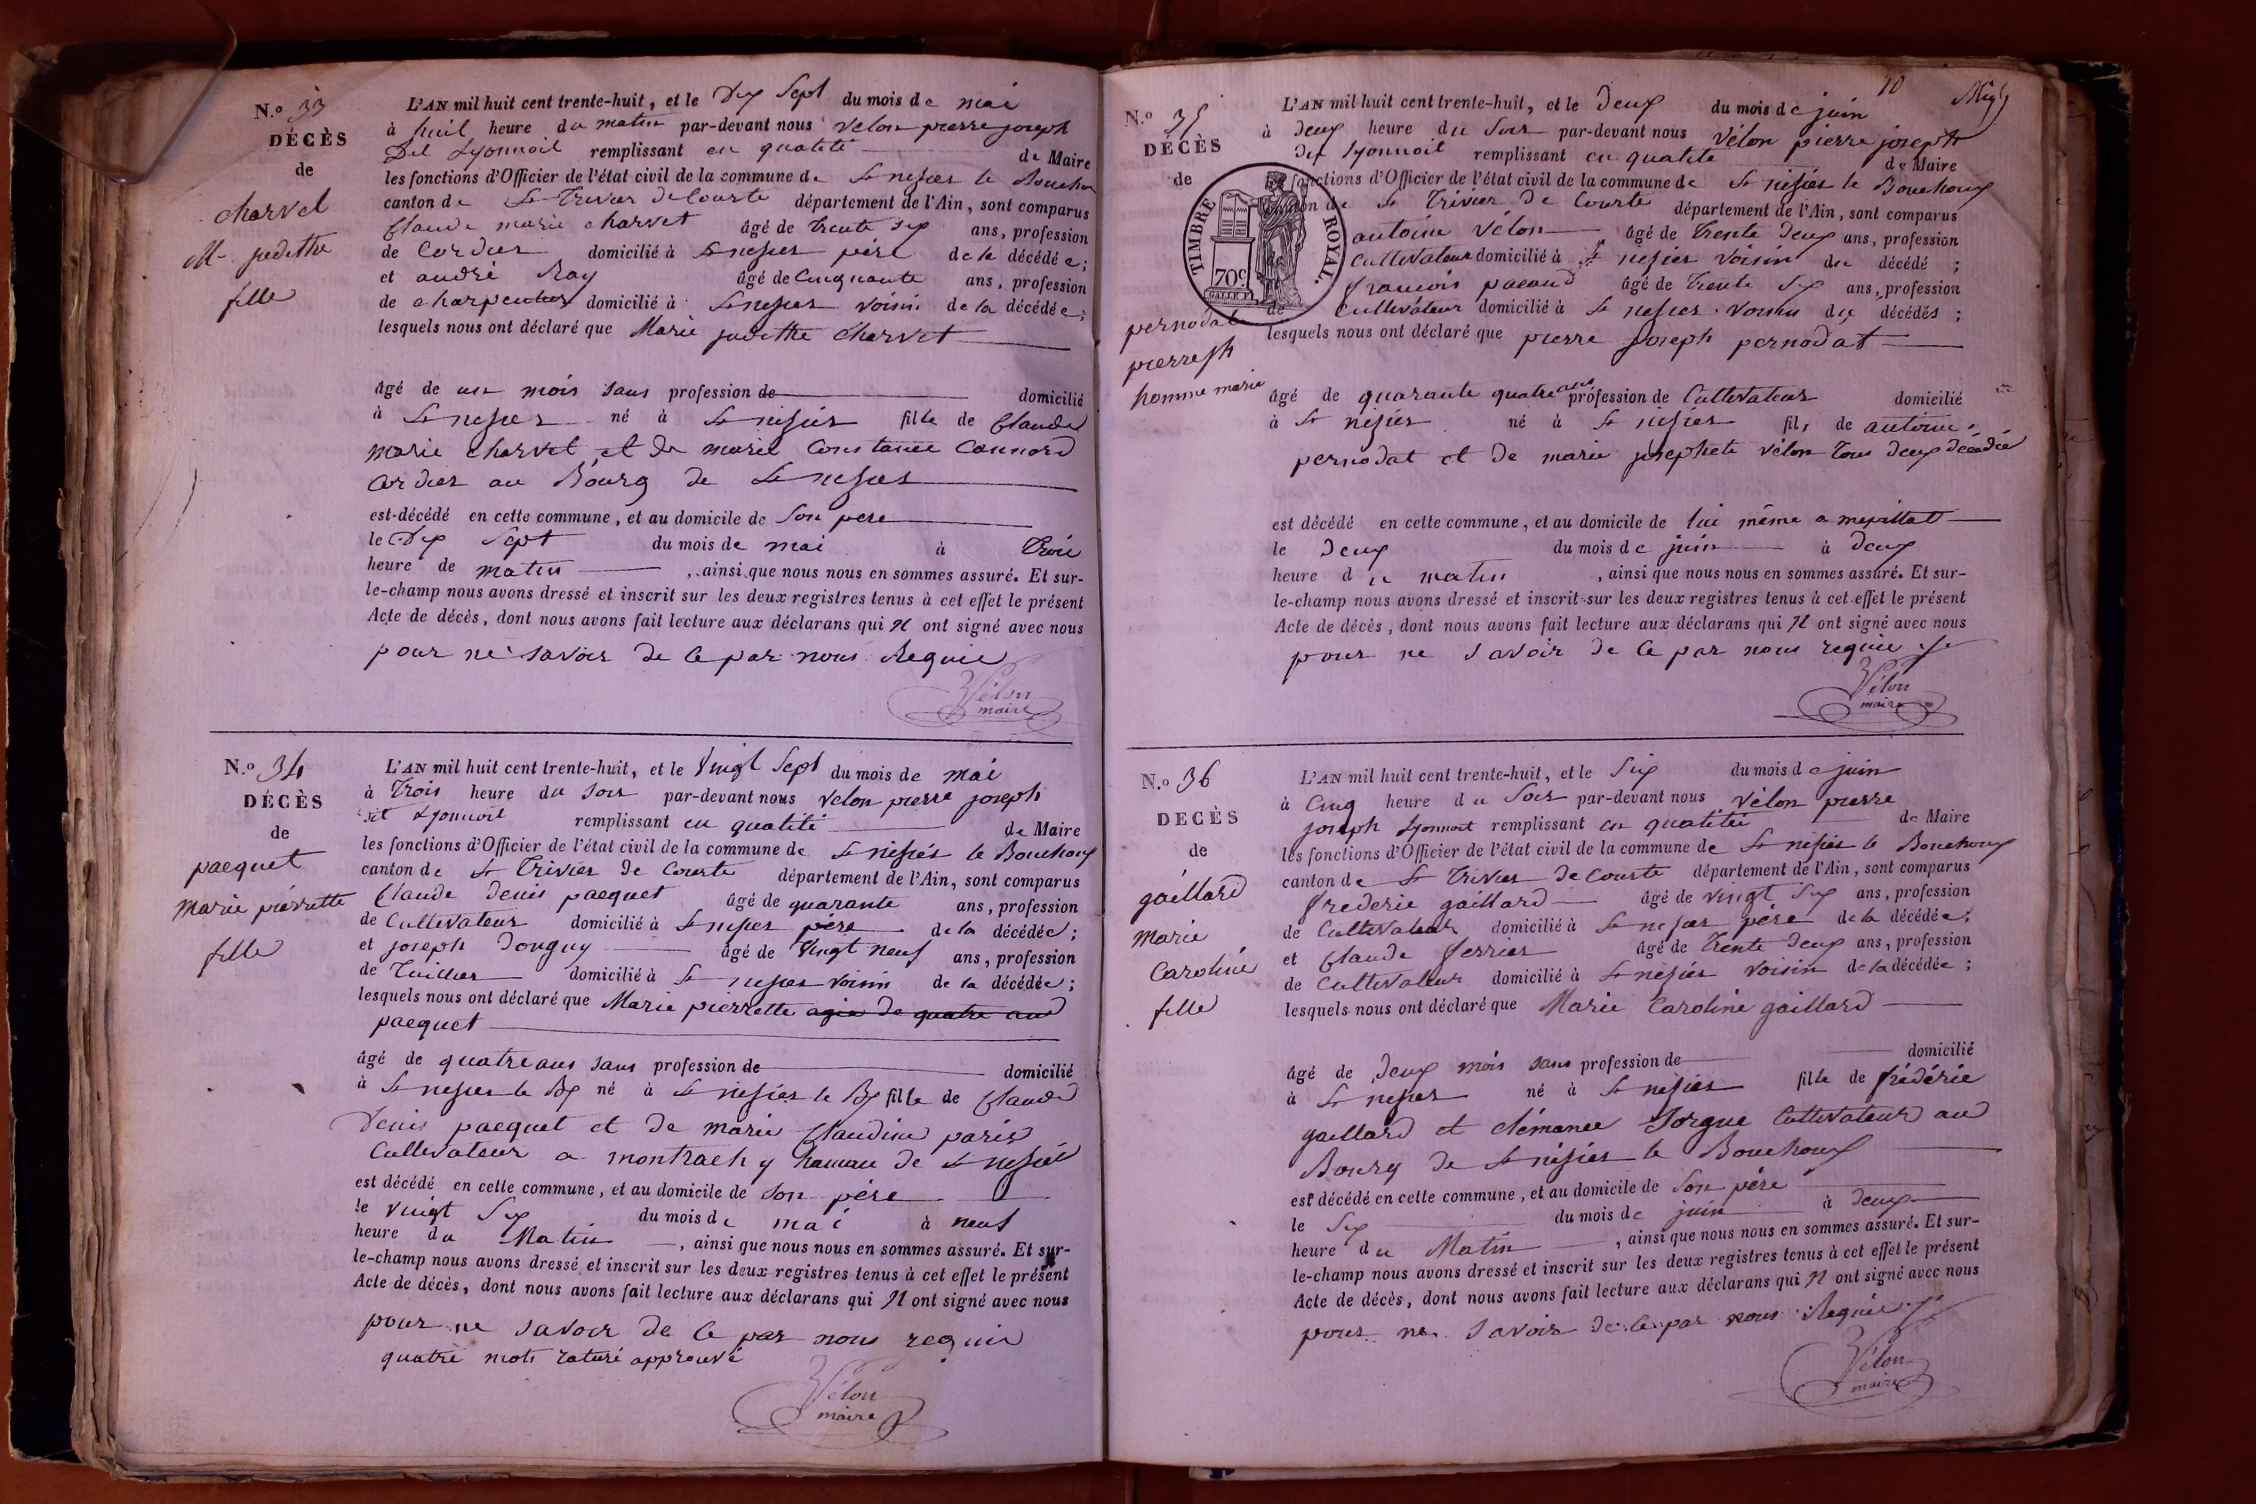 N.º 33
DÉCÈS
de
charvet
M. judithe
fille
L'AN mil huit cent trente-huit, et le Dix Sept du mois de mai
à huit heure du matin par-devant nous Vélon pierre joseph
Dit Lyonnoit remplissant en qualité de Maire
les fonctions d'Officier de l'état civil de la commune de St nisiés le Bouchoux
canton de St Trivier de Courte département de l'Ain, sont comparus
Claude marie charvet âgé de trente six ans, profession
de Cordier domicilié à St nisier père de la décédée;
et andré Ray âgé de Cinquante ans, profession
de charpentier domicilié à St nisier voisin de la décédée;
lesquels nous ont déclaré que Marie judithe Charvet
âgé de un mois sans profession de domicilié
à St nisier né à St nisiér fille de Claude
marie charvet et de marie Constance Connord
Cordier au Bourg de St nisier
est décédé en cette commune, et au domicile de Son père
le Dix Sept du mois de mai à Trois
heure de matin, ainsi que nous nous en sommes assuré. Et sur-
le-champ nous avons dressé et inscrit sur les deux registres tenus à cet effet le présent
Acte de décès, dont nous avons fait lecture aux déclarans qui N ont signé avec nous
pour ne savoir de Ce par nous Requie
Vélon
maire
N.º 34
DÉCÈS
de
pacquet
Marie pierrette
fille
L'AN mil huit cent trente-huit, et le Vingt Sept du mois de mai
à Trois heure du Soir par-devant nous Velon pierre joseph
dit Lyonnoit remplissant en qualité de Maire
les fonctions d'Officier de l'état civil de la commune de St nisiés le Bouchoux
canton de St Trivier de Courte département de l'Ain, sont comparus
Claude Denis pacquet âgé de quarante ans, profession
de Cultivateur domicilié à St nisier père de la décédée;
et joseph Donguy âgé de Vingt neuf ans, profession
de Tuilier domicilié à St nisier voisin de la décédée;
lesquels nous ont déclaré que Marie pierrette agée de quatre ans
pacquet
âgé de quatre ans sans profession de domicilié
à St nisier le Bx né à St nisiér le Bx fille de Claude
Denis pacquet et de marie Claudine paris
Cultivateur a montrachy hameau de St nisié
est décédé en cette commune, et au domicile de Son père
le vingt Six du mois de mai à neuf
heure du Matin, ainsi que nous nous en sommes assuré. Et sur-
le-champ nous avons dressé et inscrit sur les deux registres tenus à cet effet le présent
Acte de décès, dont nous avons fait lecture aux déclarans qui N ont signé avec nous
pour ne savoir de Ce par nous requie
quatre mots raturé approuvé
Vélon
maire
10
N.º 35
DÉCÈS
de
TIMBRE ROYAL.
70c
pernodat
pierre jph
homme marié
L'AN mil huit cent trente-huit, et le Deux du mois de juin
à Deux heure du Soir par-devant nous Vélon pierre joseph
Dit Lyonnoit remplissant en qualité de Maire
fonctions d'Officier de l'état civil de la commune de St nisiés le Bouchoux
canton de St Trivier De Courte département de l'Ain, sont comparus
antoine Vélon âgé de Trente Deux ans, profession
Cultivateur domicilié à St nisier voisin du décédé;
francois pacaud âgé de Trente Six ans, profession
de Cultivateur domicilié à St nisier voisin du décédés;
lesquels nous ont déclaré que pierre joseph pernodat
âgé de quarante quatre ans profession de Cultivateur domicilié
à St nisiér né à St nisiér fils de antoine
pernodat et de marie josephete vélon Tous deux décédé
est décédé en cette commune, et au domicile de lui même a mepillat
le Deux du mois de juin à Deux
heure du matin, ainsi que nous nous en sommes assuré. Et sur-
le-champ nous avons dressé et inscrit sur les deux registres tenus à cet effet le présent
Acte de décès, dont nous avons fait lecture aux déclarans qui N ont signé avec nous
pour ne savoir de Ce par nous requie
Vélon
maire
N.º 36
DECÈS
de
gaillard
Marie
Caroline
fille
L'AN mil huit cent trente-huit, et le Six du mois de juin
à Cinq heure du Soir par-devant nous Vélon pierre
joseph Lyonnoit remplissant en qualitée de Maire
les fonctions d'Officier de l'état civil de la commune de St nisiés le Bouchoux
canton de St Trivier de Courte département de l'Ain, sont comparus
frederic gaillard âgé de vingt Six ans, profession
de Cultivateur domicilié à St nisier père de la décédée;
et Claude ferrier âgé de Trente Deux ans, profession
de Cultivateur domicilié à St nisiér voisin de la décédée;
lesquels nous ont déclaré que Marie Caroline gaillard
âgé de Deux mois sans profession de domicilié
à St nisier né à St nisier fille de frédéric
gaillard et clémance Sorgue Cultivateur au
Bourg de St nisiér le Bouchoux
est décédé en cette commune, et au domicile de Son père
le Six du mois de juin à Deux
heure du Matin, ainsi que nous nous en sommes assuré. Et sur-
le-champ nous avons dressé et inscrit sur les deux registres tenus à cet effet le présent
Acte de décès, dont nous avons fait lecture aux déclarans qui N ont signé avec nous
pour ne savoir de Ce par nous Requie
Vélon
maire